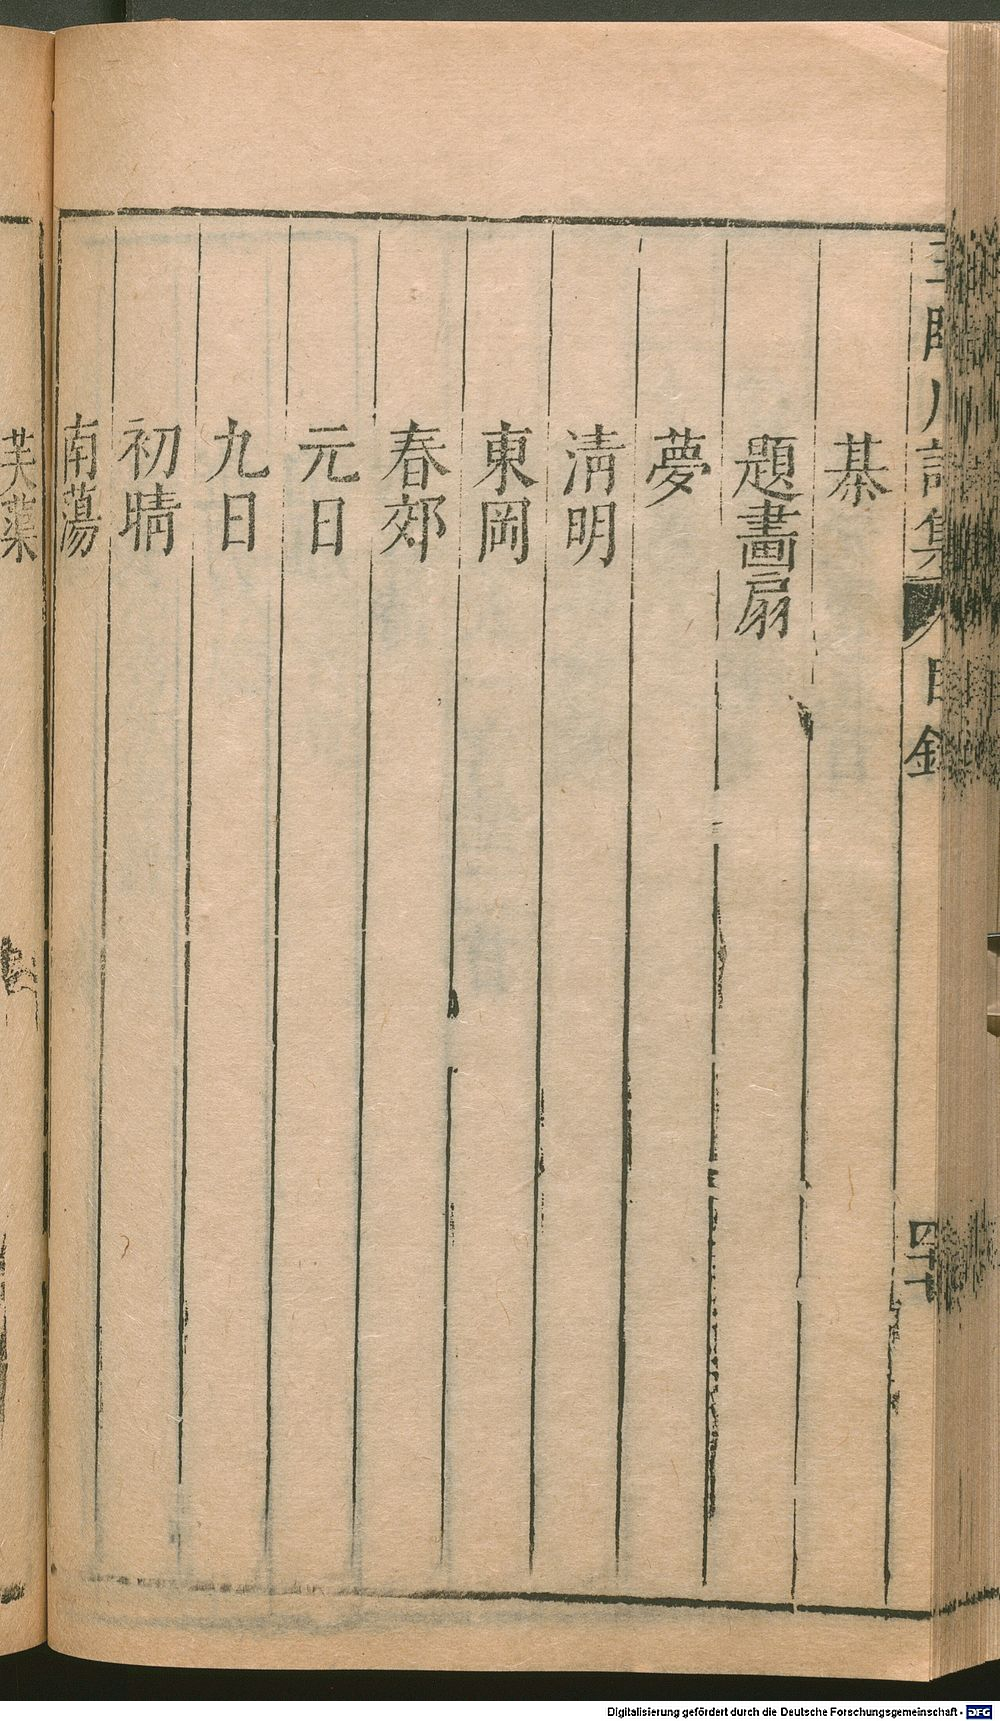 棊
題畫扇
夢
淸明
東岡
春郊
元日
九日
初晴
南蕩
芙蕖
集
目錄
四十
Digitalisierung gefördert durch die Deutsche Forschungsgemeinschaft - DFG